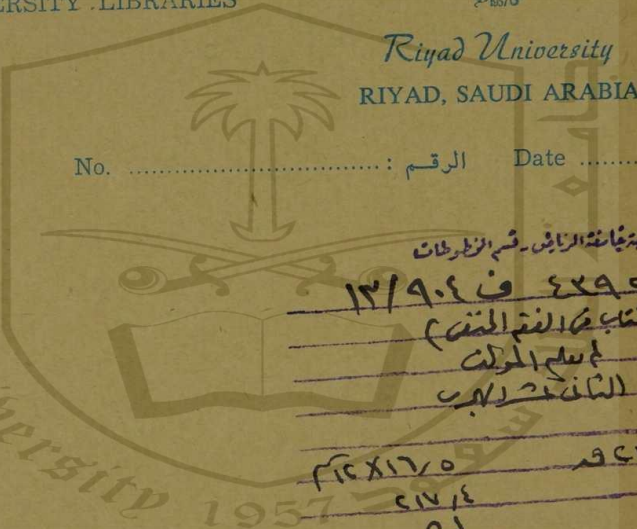 ERSITY LIBRARIES
Riyad University
RIYAD, SAUDI ARABIA
No. ................................ : الرقم Date ........
جامعة الرياض - قسم المخطوطات
٤٣٩ ف ١٣/٩٠٤
كتاب في الفقه الحنفي)
لم يعلم المؤلف
الثاني عشر الهجري
١٦٫٥×١٢سم
٢١٧٫٤
ersity 1957